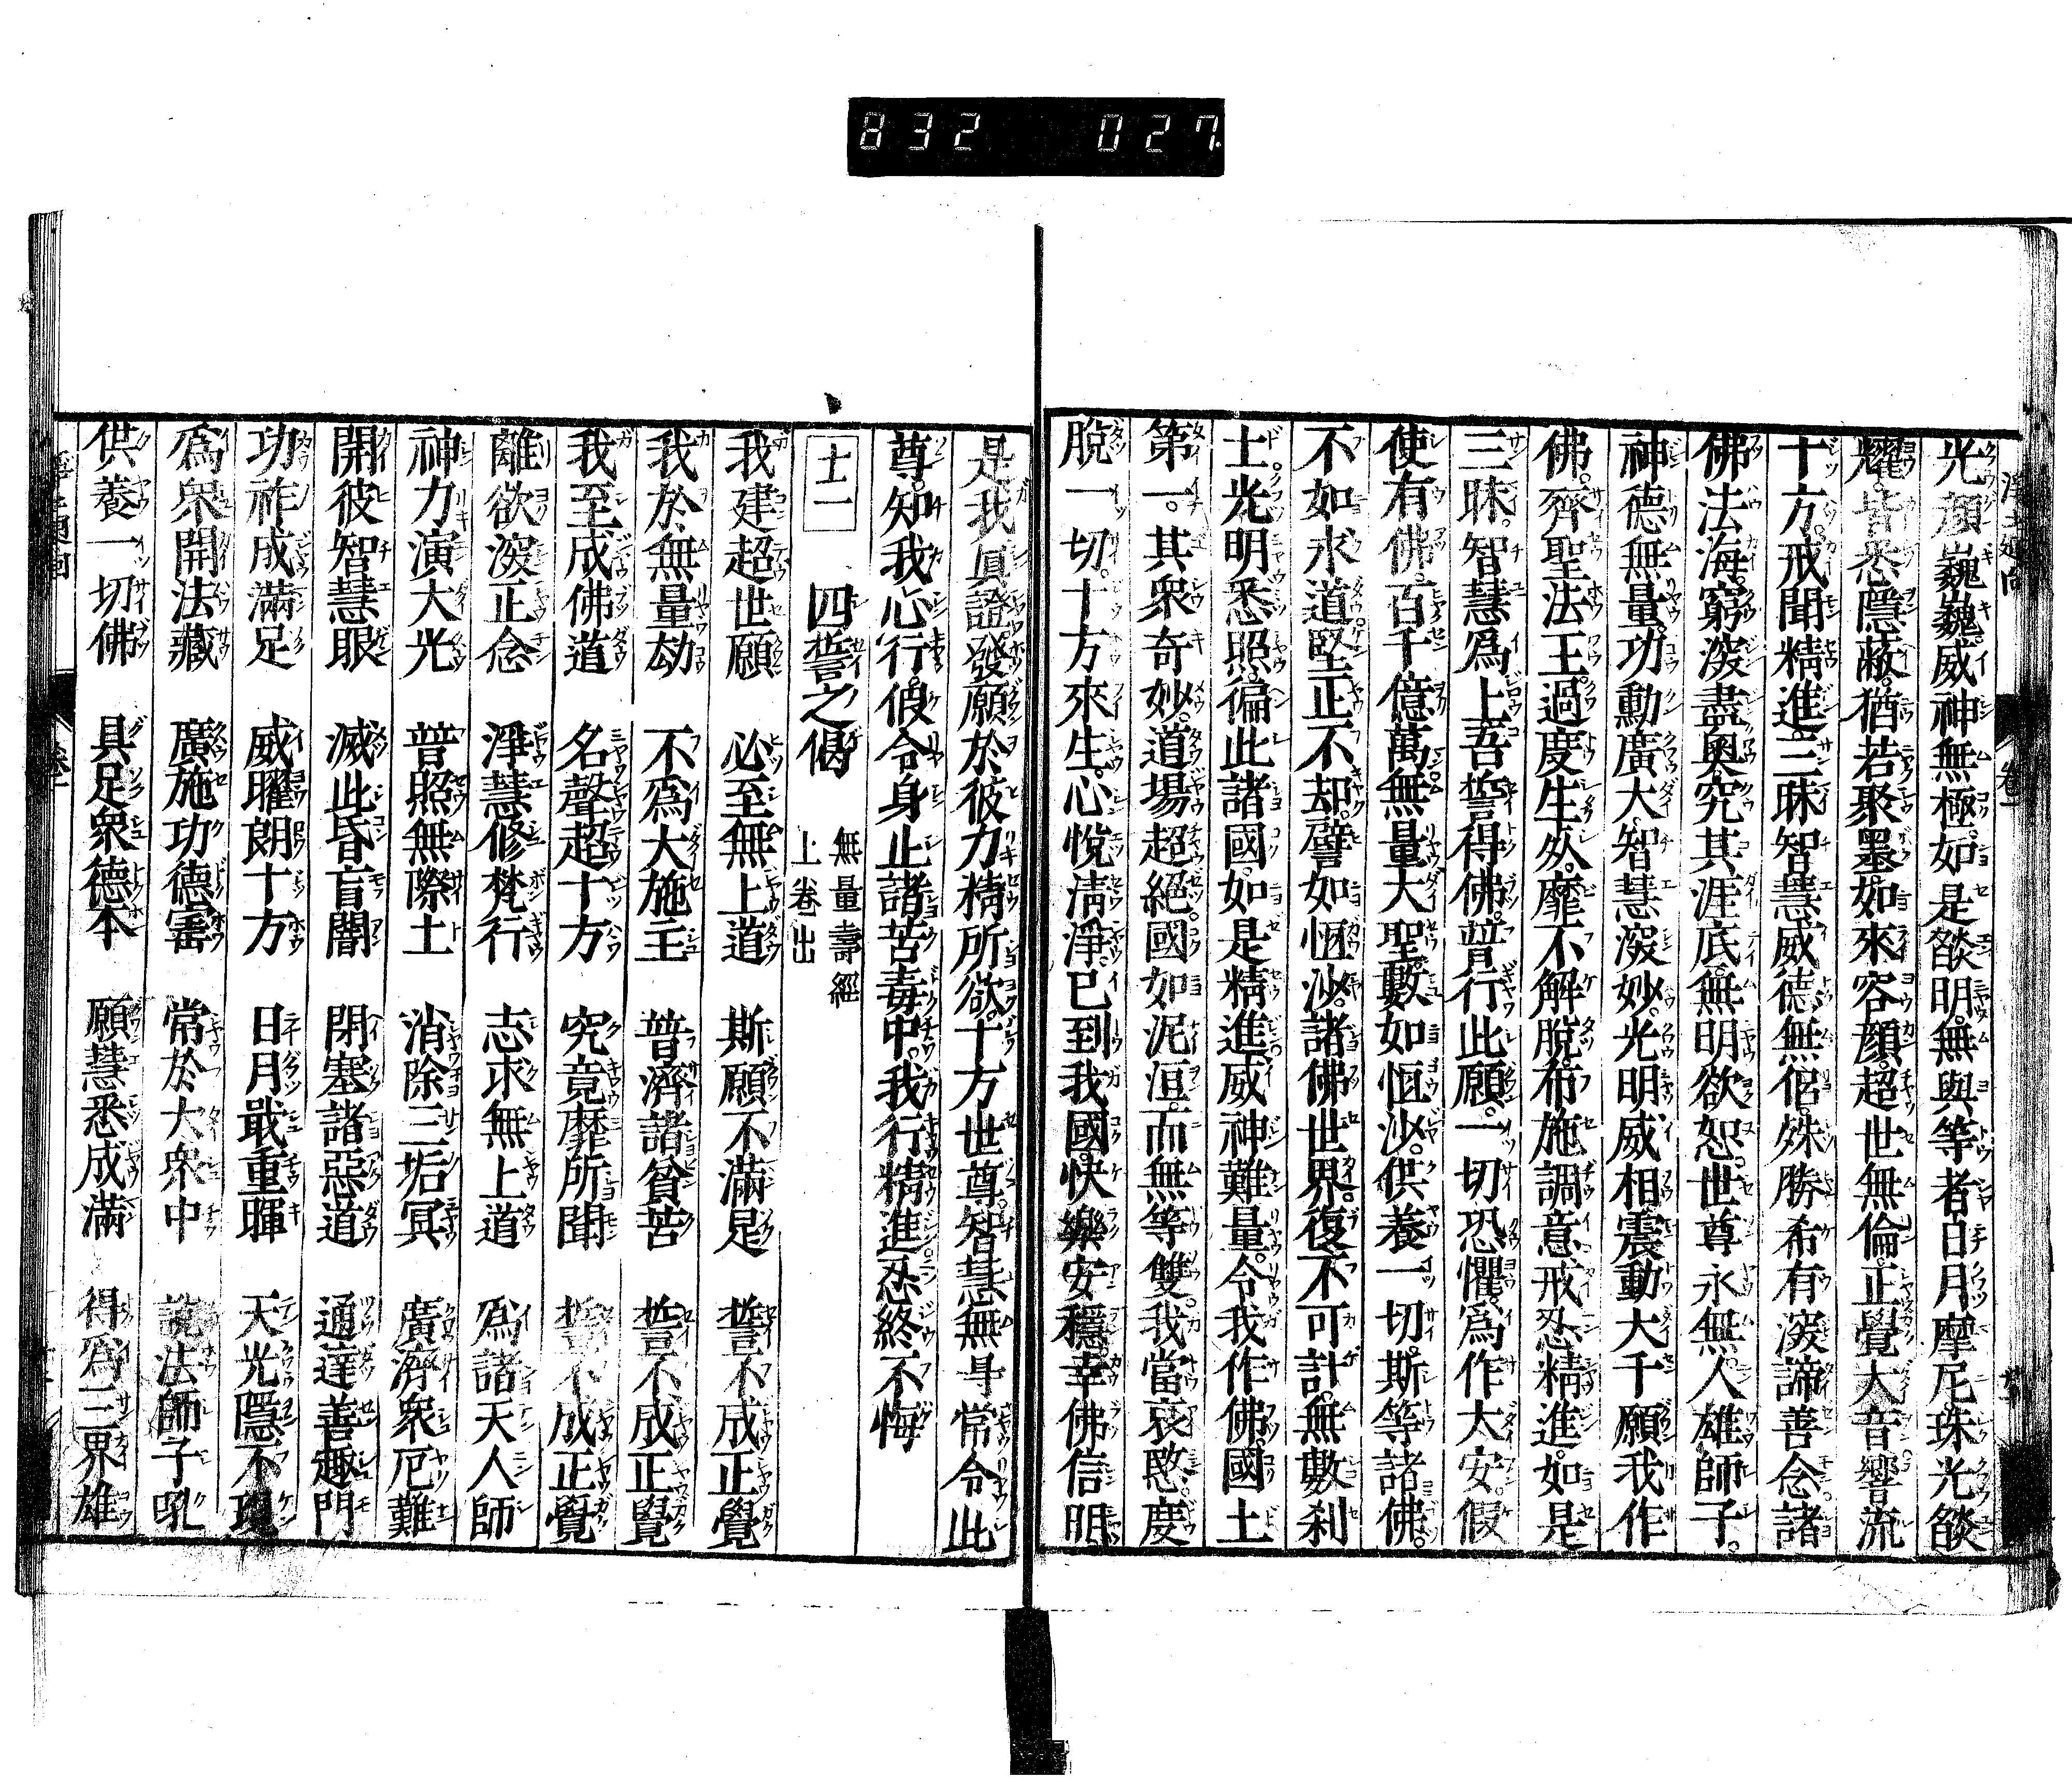 832 027
光顏巍巍。威神無極。如是燄明。無與等者日月摩尼。珠光燄
耀。皆悉隱蔽。猶若聚墨。如來容顏。超世無倫。正覺大音。響流
十方。戒聞精進。三昧智慧。威德無侶。殊勝希有。深諦善念。諸
佛法海。窮深盡奧。究其涯底。無明欲恕。世尊永無。人雄師子。
神德無量。功勳廣大。智慧深妙。光明威相。震動大千願我作
佛。齊聖法王。過度生死。靡不解脫。布施調意。戒忍精進。如是
三昧。智慧爲上。吾誓得佛。普行此願。一切恐懼。爲作大安。假
使有佛。百千億萬。無量大聖。數如恆沙。供養一切。斯等諸佛。
不如求道。堅正不却。譬如恆沙。諸佛世界。復不可計。無數刹
土。光明悉照。徧此諸國。如是精進。威神難量。令我作佛。國土
第一。其衆奇妙。道場超絕。國如泥洹。而無等雙。我當哀愍。度
脫一切。十方來生。心悅清淨。已到我國。快樂安穩。幸佛信明。
是我眞證。發願於彼。力精所欲。十方世尊。智慧無㝵。常令此
尊。知我心行。假令身止。諸苦毒中。我行精進。忍終不悔
十一 四誓之偈 無量壽經
上卷出
我建超世願 必至無上道 斯願不滿足 誓不成正覺
我於無量劫 不爲大施主 普濟諸貧苦 誓不成正覺
我至成佛道 名聲超十方 究竟靡所聞 誓不成正覺
離欲深正念 淨慧修梵行 志求無上道 爲諸天人師
神力演大光 普照無際土 消除三垢冥 廣濟衆厄難
開彼智慧眼 滅此昏盲闇 閉塞諸惡道 通達善趣門
功祚成滿足 威曜朗十方 日月戢重暉 天光隱不現
爲衆開法藏 廣施功德寶 常於大衆中 說法師子吼
供養一切佛 具足衆德本 願慧悉成滿 得爲三界雄